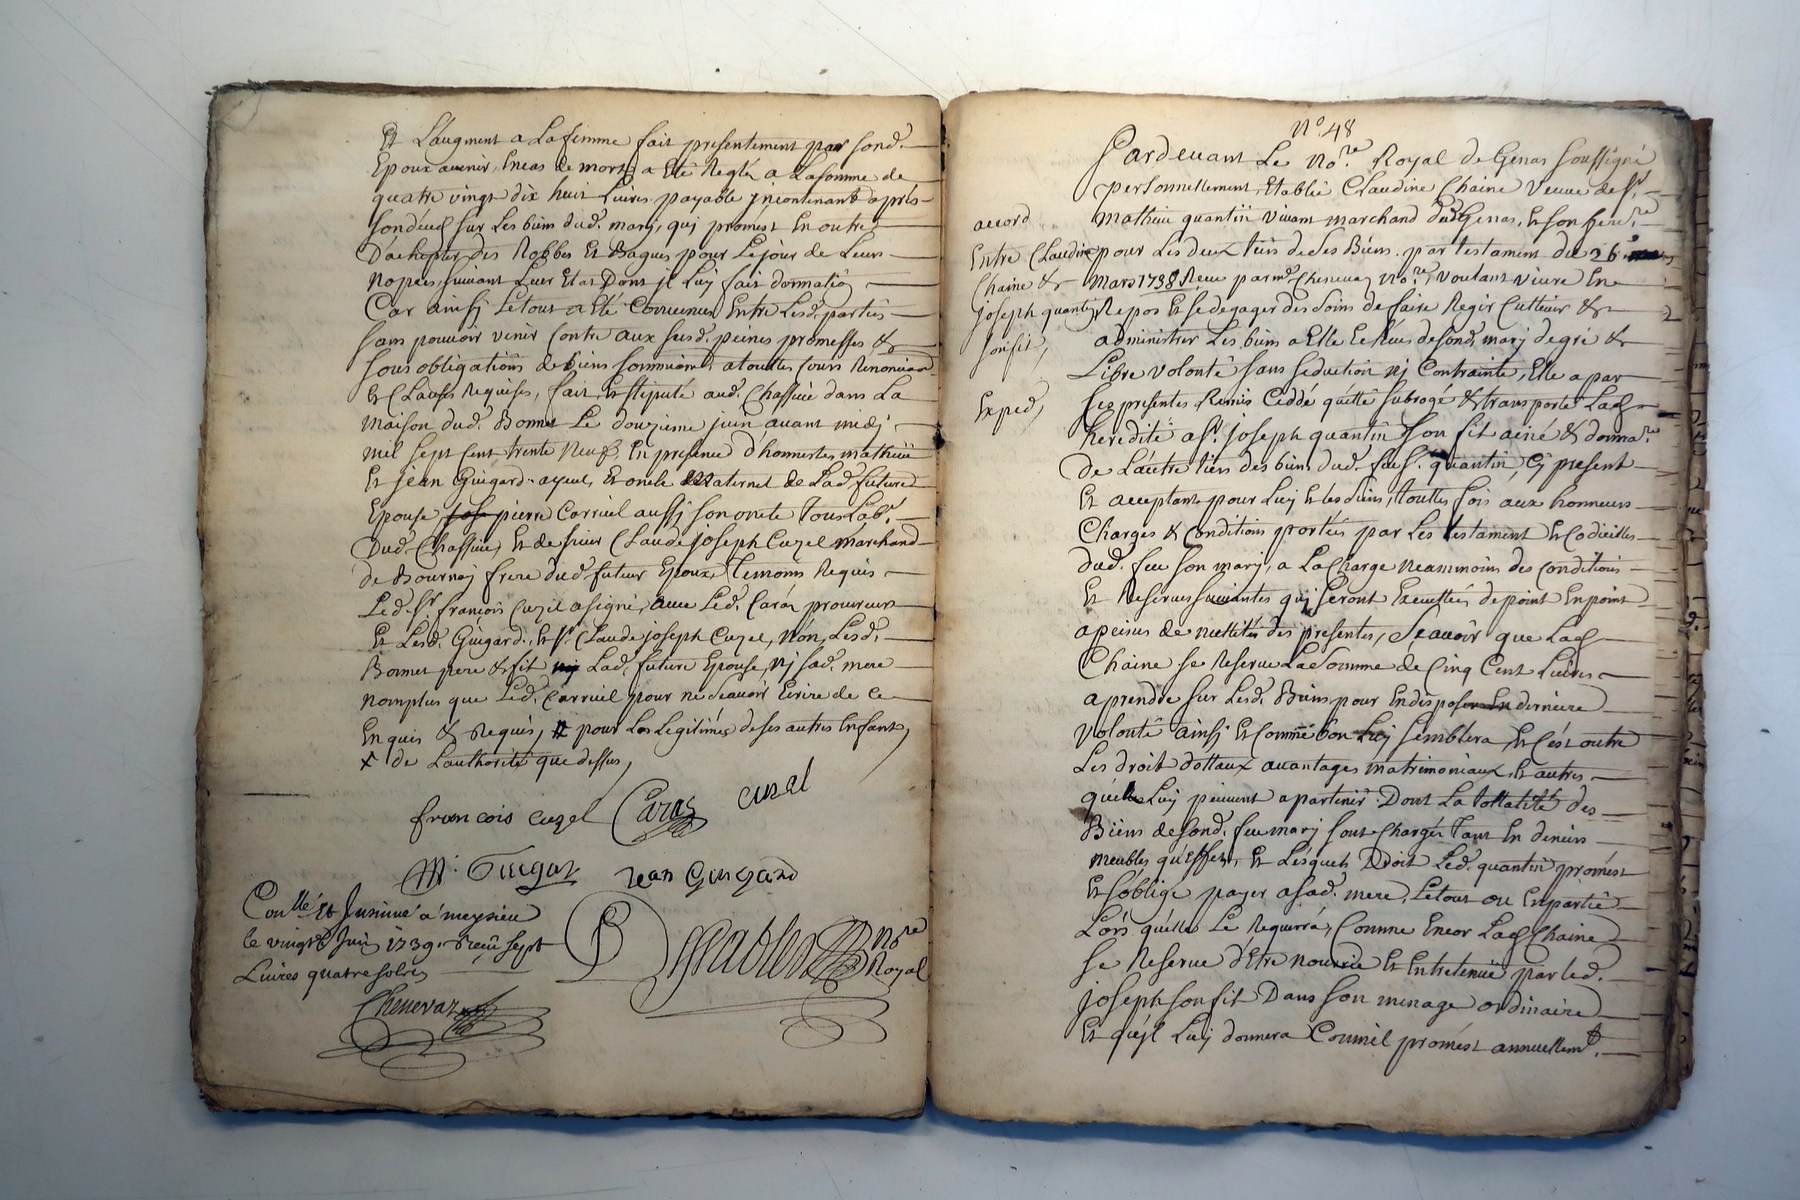 Et Laugment a La femme fait presentement par sond.
Epoux avenir, Encas de mort, a Eté Reglée a La somme de
quatre vingt dix huit Livres payable jncontinant après
sondeces sur Les biens dud. mary, qui promest En outre
D'achepter des Robbes Et Bagues pour Le jour de Leurs
nopces, suivant Leur Etat Dont jl Luy fait donnatio͂n
Car ainsy Le tout a Eté Convenus Entre Lesd. parties
sans pouvoir venir Contre aux susd. peines promesses &
sous obligations de biens soumissions, a touttes Cours Renonciaon
Et Clauses Requises, fait, Et stipulé aud. Chassieu dans La
maison dud. Bonnet Le douzieme juin avant midy
mil sept Cent trente neuf, En presence d'honnestes mathieu
Et jean Guigard ayeul, Et oncle maternel de Lad. future
Epouse pierre Carruel aussy son oncle Tous Labr.
Dud. Chassieu, Et de sieur Claude joseph Cuzel marchand
de Bournay frere dud. futur Epoux, temoins Requis
Led. Sr. françois Cuzel a signé, avec Led. Caráz procureur
Et Lesd. Guigard, Et Sr. Claude joseph Cuzel, Non, Lesd.
Bonnet pere & fil Lad. future Epouse, nj sad. mere
nomplus que Led. Carruel pour ne Scavoir Ecrire de ce
Enquis & Requis, # pour Les Legitimes de ses autres Enfants,
x de L'authorité que dessus,
francois cuzel Caraz cuzel
M. Guigar Jean Guigard
Conllé. Et Jnsinué a meyzieu
le vingt Juin 1739. Receu sept
Livres quatre solz
Chenevaz
nore
Royal
No. 48
Pardevant Le Nore. Royal de Genas soussigné
personnellement, Etablie Claudine Chaine veuve de Sr.
mathieu quantin vivant marchand dud. Genas, Et son here.re
pour Les deux tiers de Ses Biens par testament du 26e
mars 1738 Receu par me Chenevaz Nore., voulant vivre En
Repos Et se degager des soins de faire Regir Cultiver &
administrer Les biens a Elle Echeus de sond. mary de gré &
Libre volonté sans seduction nj Contrainte, Elle a par
Ses presentes Remis Ceddé quitté subrogé & transporté Lad.
heredité a Sr. joseph quantin son fil ainé & donna.re
de L'autre tiers des biens dud. feu S. quantin, Cy present
Et acceptant pour Luy Et les siens, touttes fois aux honneurs
Charges & Conditions portées par Les testament Et Codicilles
dud. feu son mary, a La Charge neammoins des Conditions
Et Reserves suivantes quj seront Executtées de point En point
a peines de nullittés des presentes, Scavoir que Lad.
Chaine se Reserve La somme de Cinq Cent Livres
a prendre sur Lesd. Biens pour En disposer En derniere
volonté ainsy Et Comme bon Luy semblera, Et C'est outre
Les droit dottaux avantages matrimoniaux, Et autres
quelle Luy peuvent apartenir Dont La tottalité des
Biens de sond. feu mary sont Chargés Tant En deniers
meubles qu'Effets, Et Lesquels Ddoit Led. quantin promest
Et s'oblige payer a sad. mere, Le tout ou En partie
Lors quelle Le Requirra, Comme Encor Lad. Chaine
se Reserve d'Etre nourrie Et Entretenüe par led.
joseph son fil Dans son menage ordinaire
Et qu'jl Luy donnera Comme jl promest annuellemt.
accord
Entre Claudine
Chaine &
joseph quantin
son fil,
Exped,